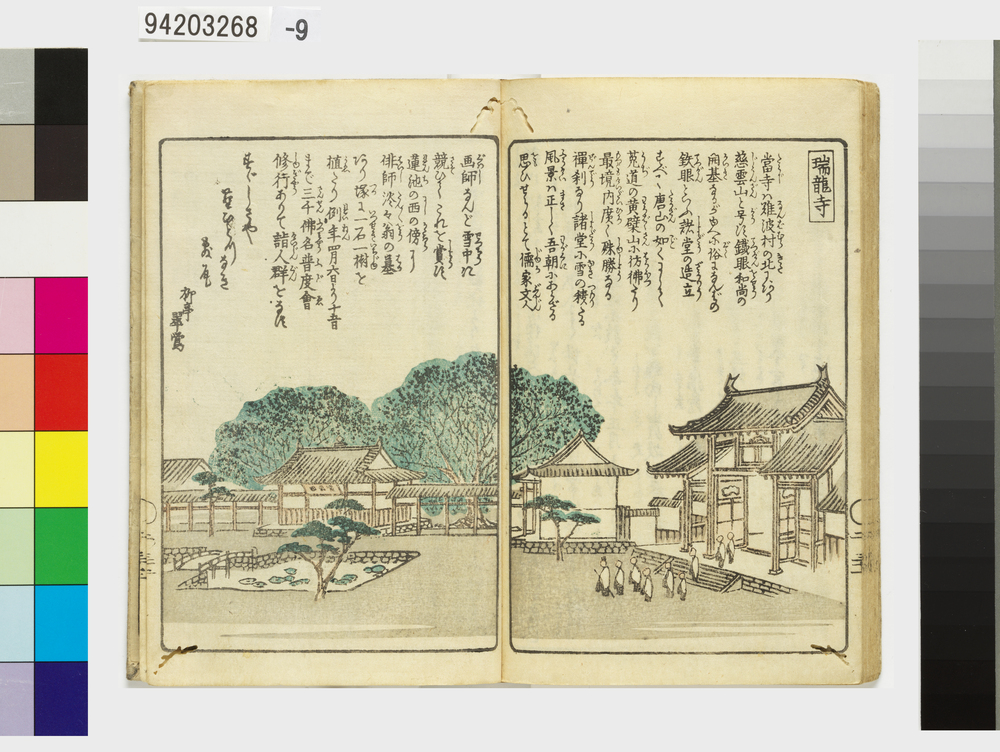 94203268 -9
瑞龍寺
當寺ハ難波村の北にあり
慈雲山と号す鐵眼和尚の
開基
鉄眼 堂の造立
唐山の如く
莵道の黄檗山に彷彿たり
最境内廣く殊勝なる
禪刹なり諸堂に雪の積たる
風景ハ正しく吾朝にあらざる
思ひせらるとて儒家文人
画師なんど雪中に
競ひてこれを賞す
蓮池の西の傍に
俳師淡々翁の墓
あり塚に一石一樹を
植たり例年四月六日より十五日
まで三千佛名普度會
修行ありて詣人群をなす
すゞしさや